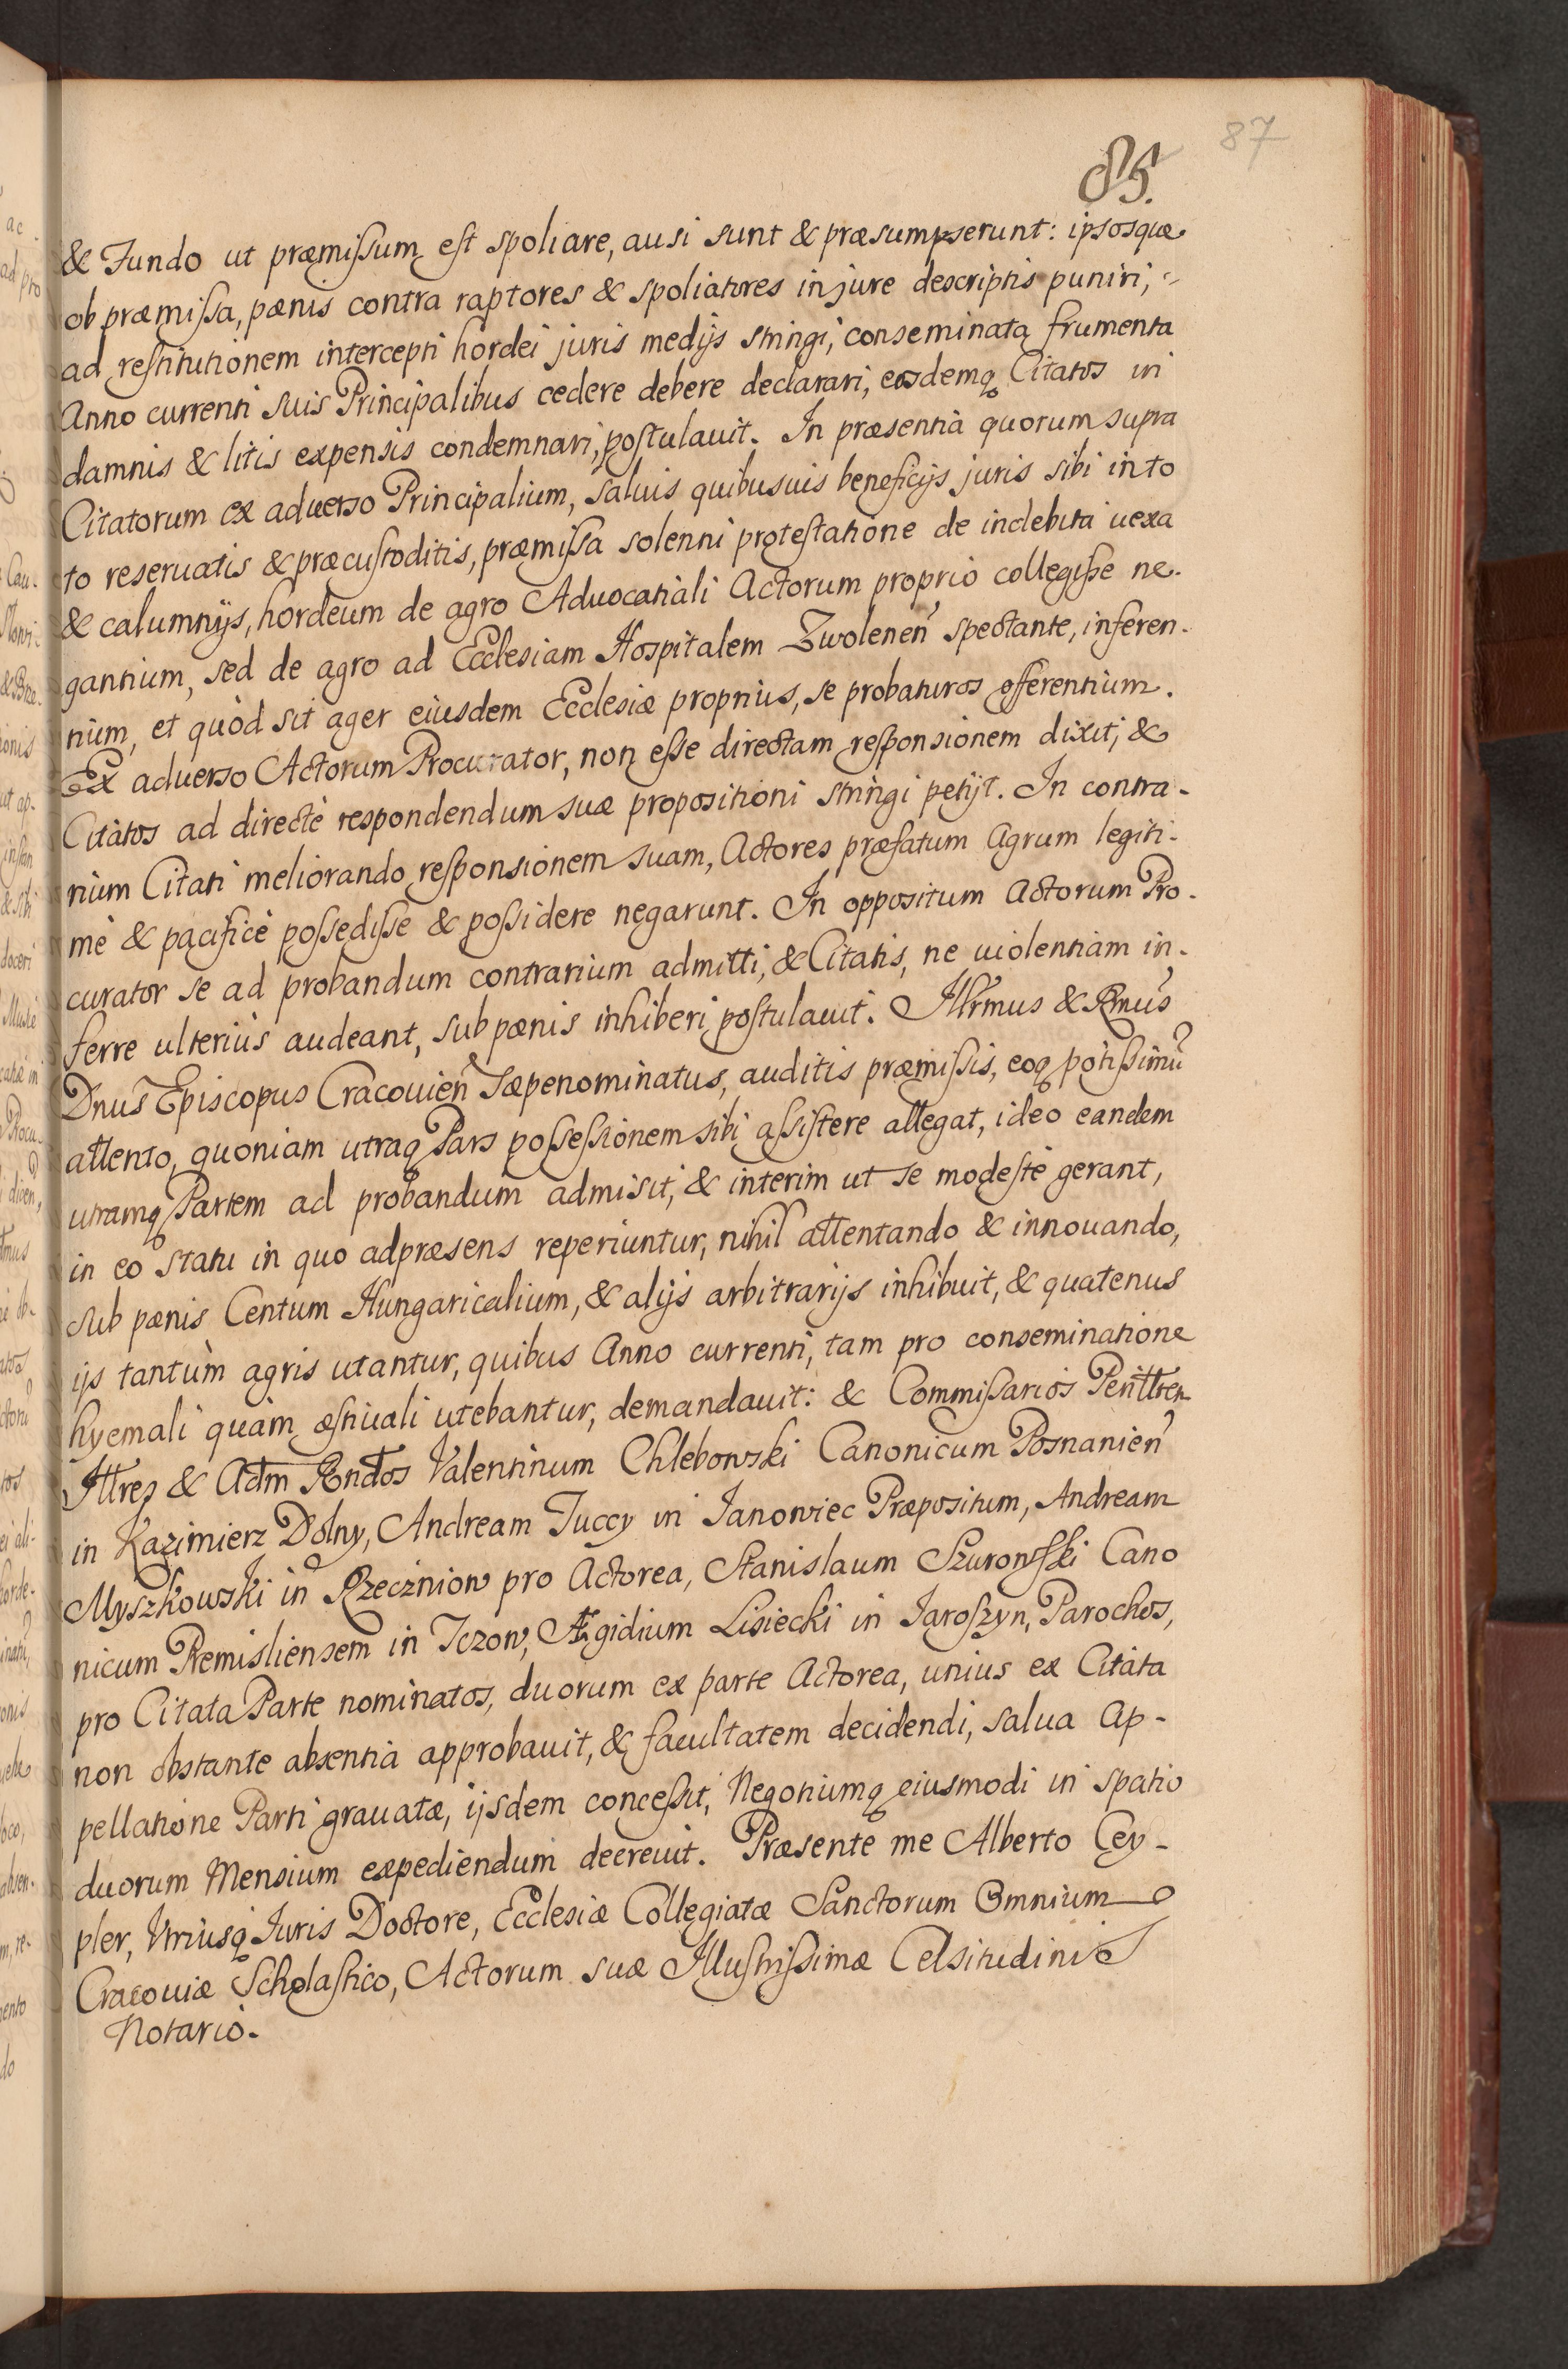 87
85.
& Fundo ut præmissum est spoliare, ausi sunt & præsumpserunt: ipsosque
ob præmissa, pænis contra raptores & spoliatores in jure descriptis puniri,
ad restitutionem intercepti hordei juris medijs stringi, conseminata frumenta
Anno currenti suis Principalibus cedere debere declarari, eosdemq Citatos in
damnis & litis expensis condemnari, postulauit. In præsentia quorum supra
Citatorum ex aduerso Principalium, saluis quibusuis beneficijs juris sibi in to
to reseruatis & præcustoditis, præmissa solenni protestatione de indebita uexa
& calumnijs, hordeum de agro Aduocatiali Actorum proprio collegisse ne-
gantium, sed de agro ad Ecclesiam Hospitalem Zwolenen̄ spectante, inferen-
tium, et quòd sit ager eiusdem Ecclesiæ proprius, se probaturos offerentium.
Ex aduerso Actorum Procurator, non esse directam responsionem dixit, &
Citatos ad directè respondendum suæ propositioni stringi petijt. In contra-
rium Citati meliorando responsionem suam, Actores præfatum Agrum legiti-
mè & pacificè possedisse & possidere negarunt. In oppositum Actorum Pro-
curator se ad probandum contrarium admitti, & Citatis, ne uiolentiam in-
ferre ulterius audeant, sub pænis inhiberi postulauit. Illrmus & Rmūs
Dnūs Episcopus Cracouien̄ Sæpenominatus, auditis præmissis, eoq potissimū
attento, quoniam utraq Pars possessionem sibi assistere allegat, ideo eandem
utramq Partem ad probandum admisit, & interim ut se modestè gerant,
in eo statu in quo adpræsens reperiuntur, nihil attentando & innouando,
sub pænis Centum Hungaricalium, & alijs arbitrarijs inhibuit, & quatenus
ijs tantùm agris utantur, quibus Anno currenti, tam pro conseminatione
hyemali quàm æstiuali utebantur, demandauit: & Commissarios
Illres & Adm Rndos Valentinum Chlebowski Canonicum Posnanien̄
in Kazimierz Dolny, Andream Tuccy in Janowiec Præpositum, Andream
Myszkowski in Rzeczniow pro Actorea, Stanislaum Szurowski Cano
nicum Premisliensem in Tczow, Ægidium Lisiecki in Jaroszyn, Parochos,
pro Citata Parte nominatos, duorum ex parte Actorea, unius ex Citata
non obstante absentia approbauit, & facultatem decidendi, salua Ap-
pellatione Parti grauatæ, ijsdem concessit, Negotiumq eiusmodi in spatio
duorum Mensium expediendum decreuit. Præsente me Alberto Cey-
pler, Vtriusq Juris Doctore, Ecclesiæ Collegiatæ Sanctorum Omnium
Cracouiæ Scholastico, Actorum suæ Illustrissimæ Celsitudinis
Notario.